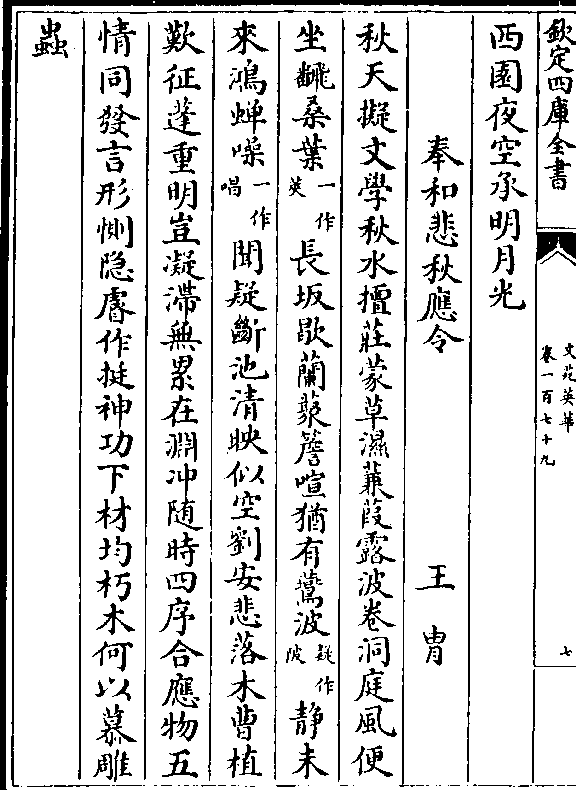 欽定四庫全書
文苑英華
卷一百七十九
七
西園夜空承明月光
奉和悲秋應令 王胄
秋天擬文學秋水擅莊蒙草濕蒹葭露波卷洞庭風便
坐飄桑葉一作英長坂歇蘭藂簷喧猶有鷰波疑作陂静未
來鴻蟬噪一作唱聞疑斷池清映似空劉安悲落木曹植
歎征蓬重明豈凝滯無累在淵冲随時四序合應物五
情同發言形惻隐睿作挺神功下材均朽木何以慕雕
蟲